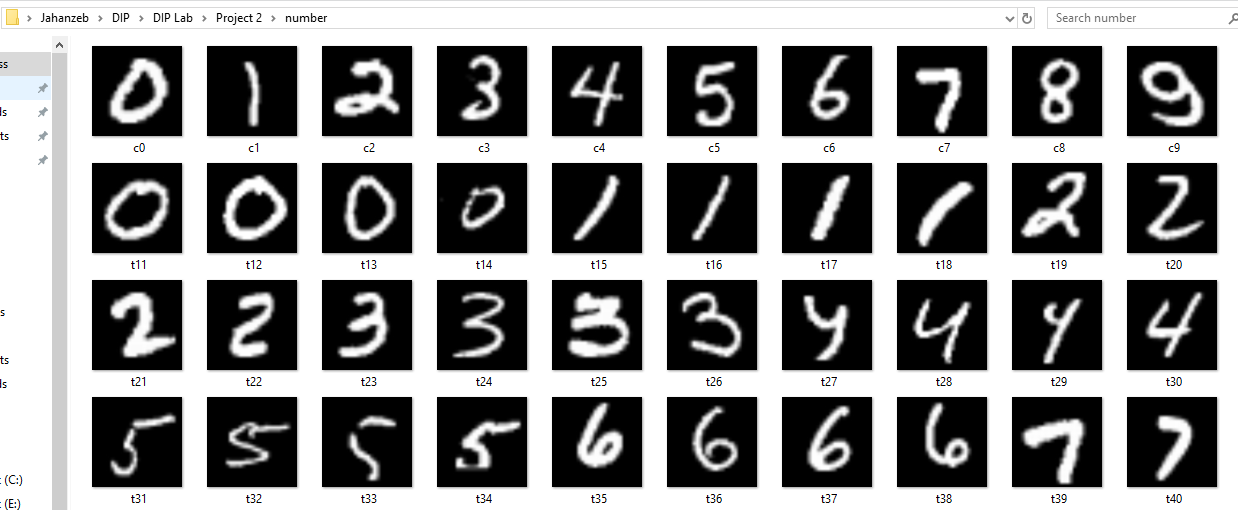 › Jahanzeb › DIP › DIP Lab › Project 2 › number
Search number
ss
ls
ts
0 1 2 3 4 5 6 7 8 9
c0 c1 c2 c3 c4 c5 c6 c7 c8 c9
0 0 0 0 1 1 1 1 2 2
t11 t12 t13 t14 t15 t16 t17 t18 t19 t20
s
2 2 3 3 3 3 4 4 4 4
ts
t21 t22 t23 t24 t25 t26 t27 t28 t29 t30
ls
5 5 5 5 6 6 6 6 7 7
(C:)
t31 t32 t33 t34 t35 t36 t37 t38 t39 t40
(E:)